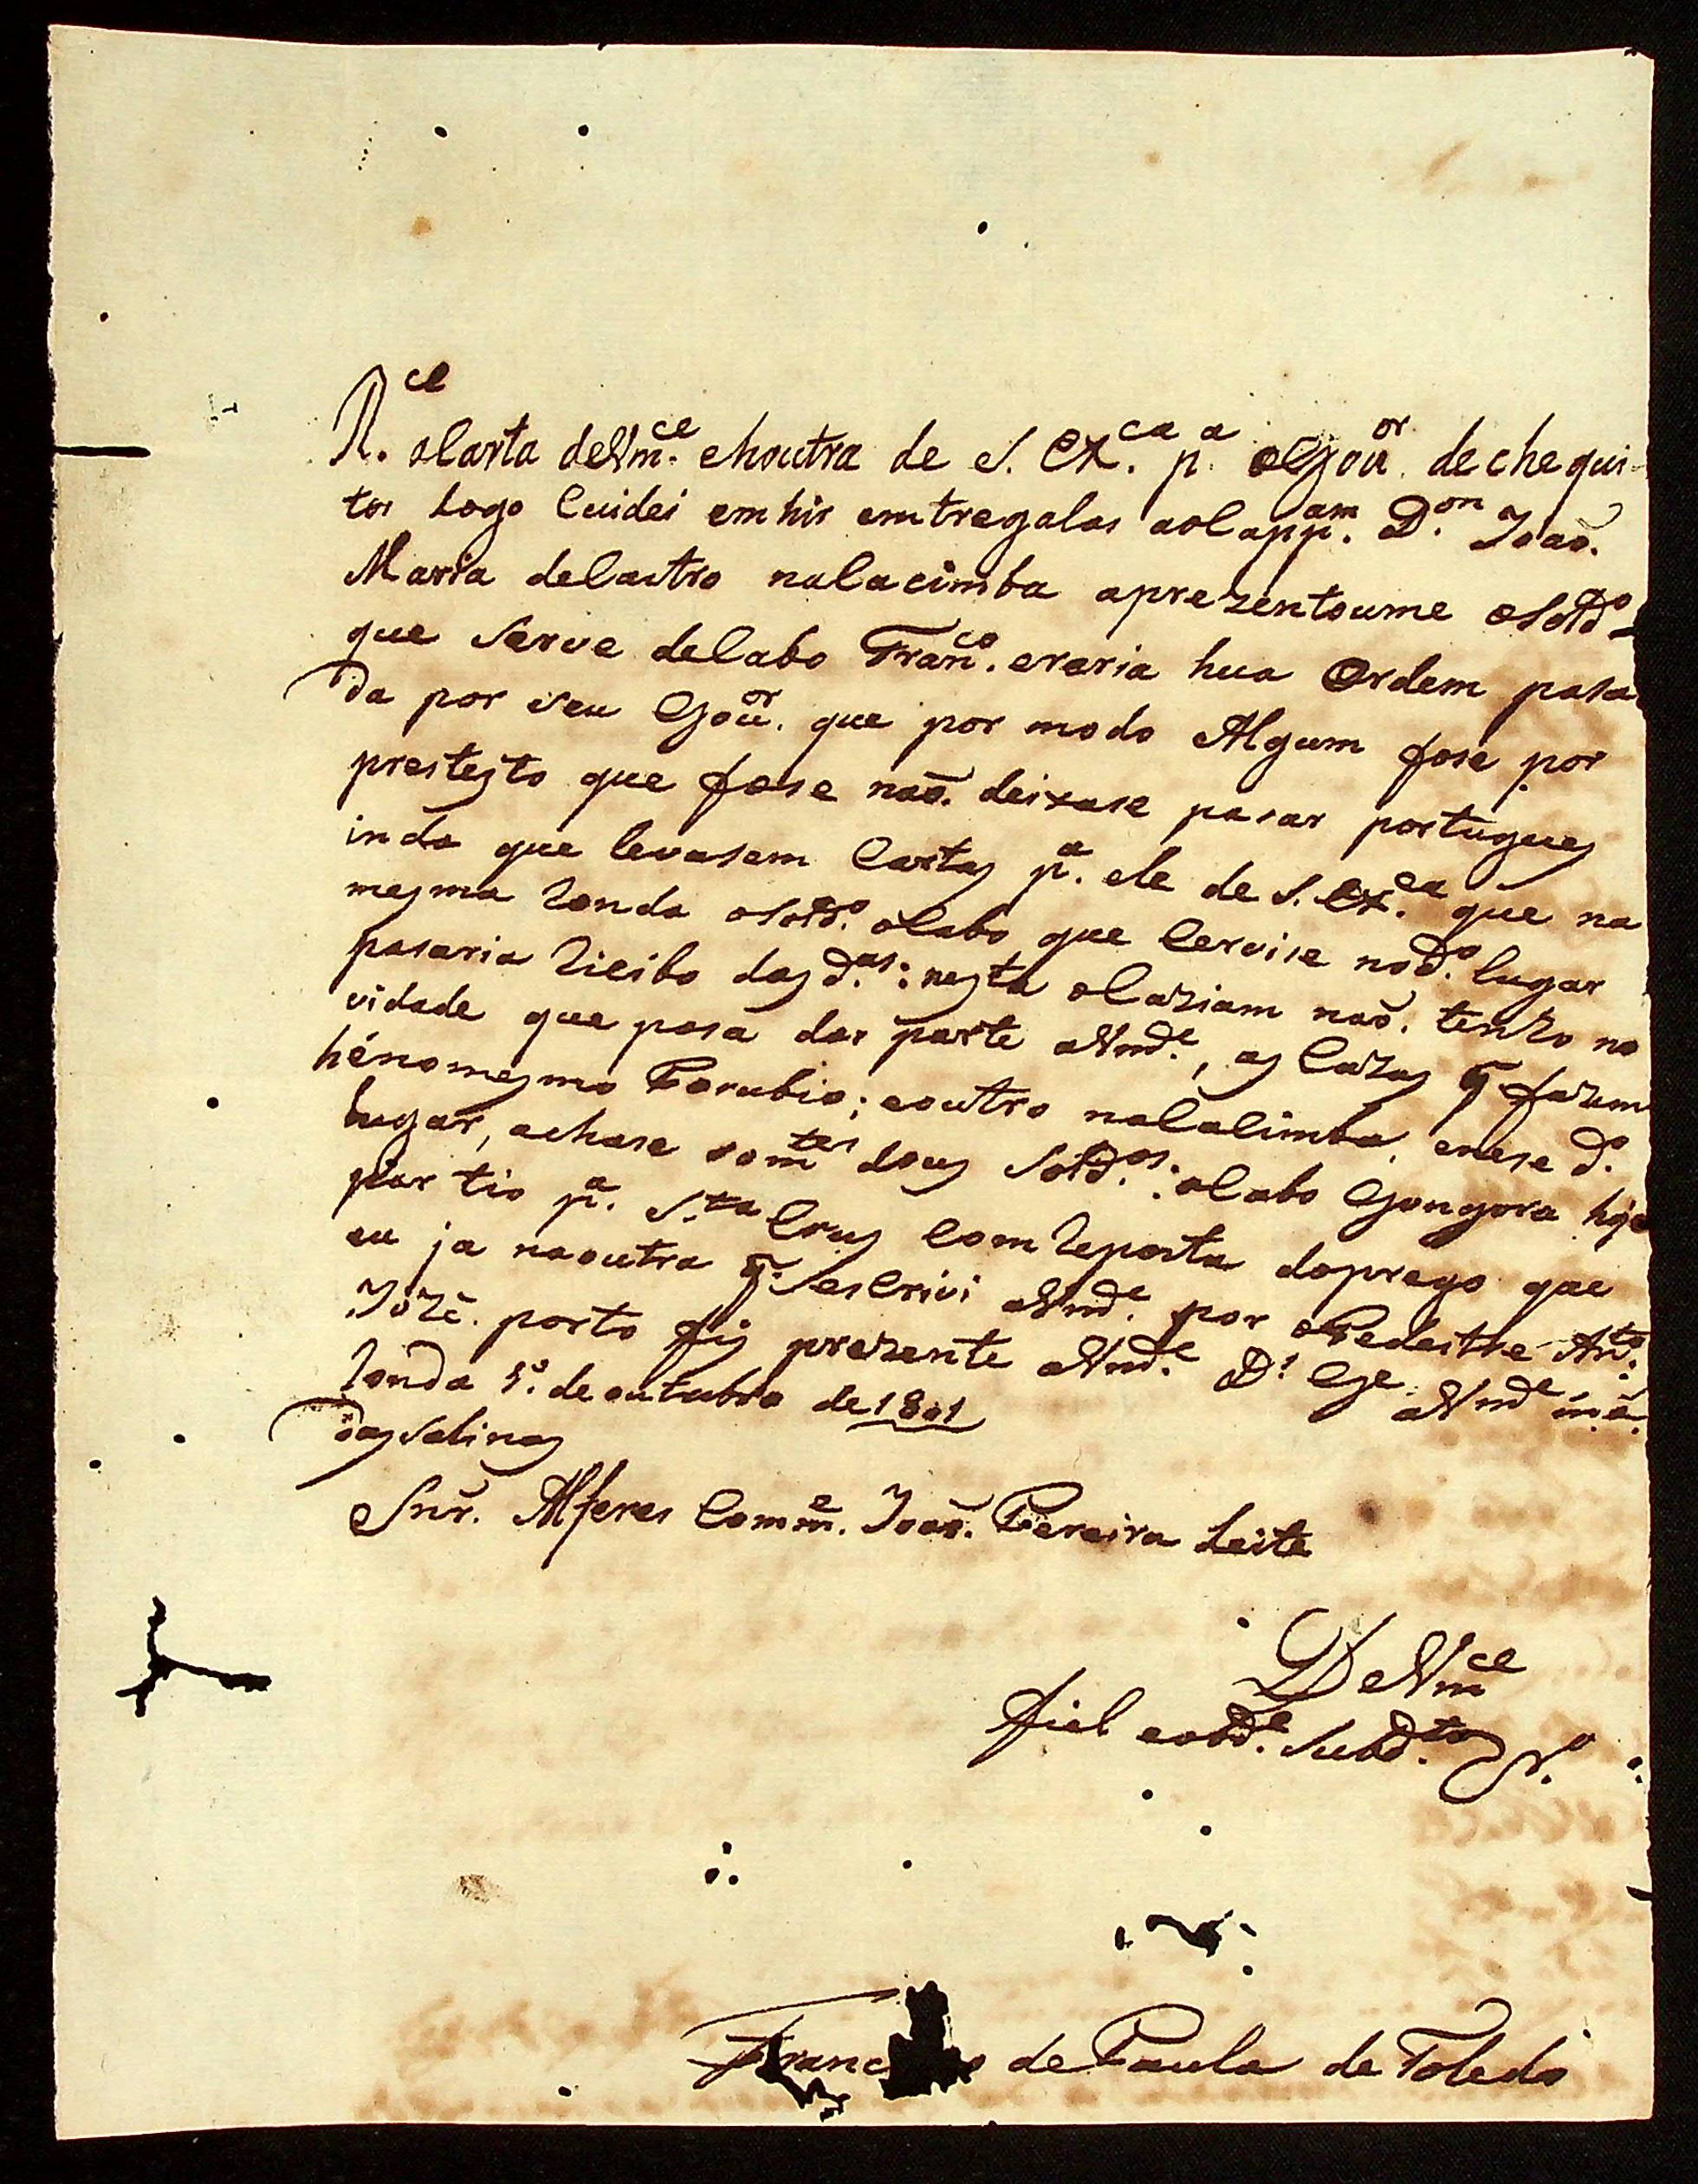 R.ce a Carta deVm.ce ehoutra de S. Ex.ca p.a oGou.or dechequi-
tos Logo Cuidei emhir emtregalas aoCapp.am D.on Joaõ.
Maria deCastro naCacimba aprezentoume oSold.o
que Serve deCabo Fran.co eraria hua Ordem pasa
da por seu Gou.or que por modo Algum fose por
prestesto que fose naõ. deixase pasar portugues
inda que levasem Cartas p.a ele de S. Ex.ca que na
mesma Ronda oSold.o oCabo que Cervise nod.o lugar
pasaria Ricibo das d.as: nesta oCaziam naõ. tenho no
vidade que posa dar parte aVmd.e, as Cazas q̃ fazem
hé nomesmo Borubio; eoutro naCalimba, enese d.o
lugar, achase som.tes dous Sold.os: oCabo Gongora hoje
partio p.a S.ta Crus Com Reposta doprego que
eu ja naoutra q̃. esCrivi aVmd.e por oPedestre Ant.o
Jozé. porto fis prezente aVmd.e D.s G.e aVmd.e m.s a.
Ronda 5.o de outubro de 1801
das Salinas
Snr̃. Alferes Comm.e Joaõ. Pereira Leite
DeVm.ce
fiel eobd.e Subd.to
Franc de Paula de Toledo